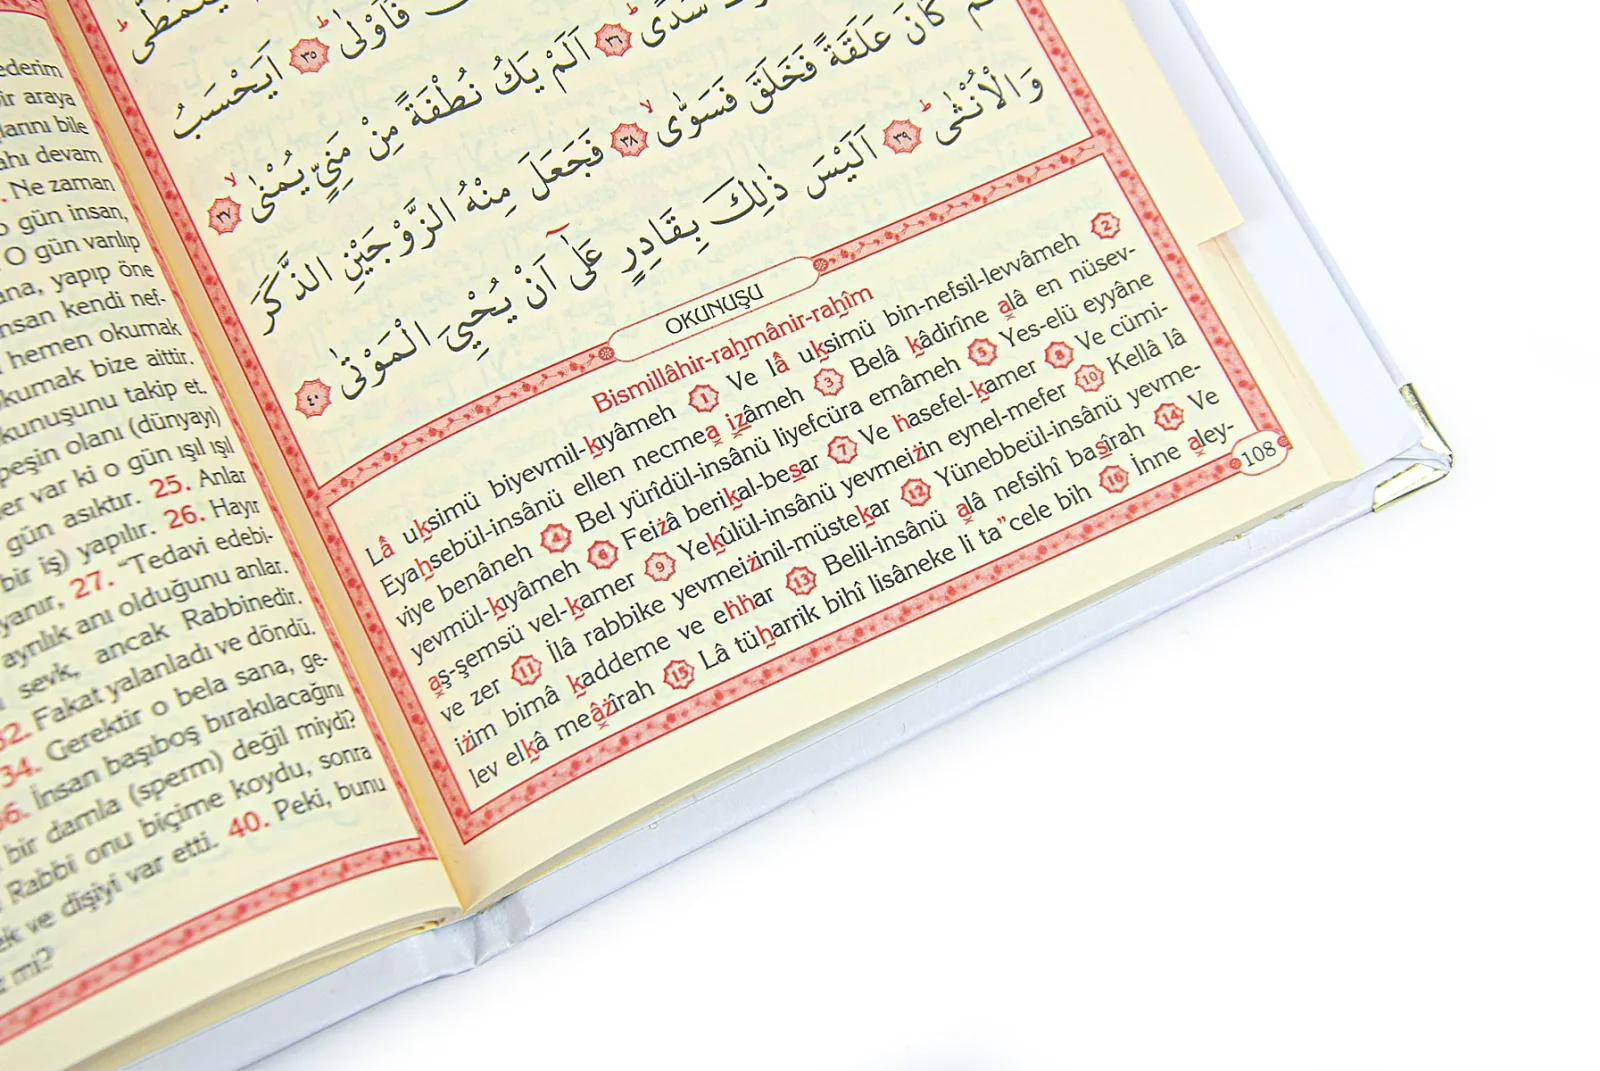 ederim
bir araya
larını bile
ahı devam
. Ne zaman
o gün insan,
. O gün varılıp
ana, yapıp öne
insan kendi nef-
hemen okumak
okumak bize aittir.
kunuşunu takip et.
peşin olanı (dünyayı)
ler var ki o gün ışıl ışıl
gün asıktır. 25. Anlar
bir iş) yapılır. 26. Hayır
yanır, 27. “Tedavi edebi-
ayrılık anı olduğunu anlar.
sevk, ancak Rabbinedir.
32. Fakat yalanladı ve döndü.
34. Gerektir o bela sana, ge-
36. İnsan başıboş bırakılacağını
bir damla (sperm) değil miydi?
Rabbi onu biçime koydu, sonra
ek ve dişiyi var etti. 40. Peki, bunu
mi?
فَاَوْلٰىۜ ﴿٣٥﴾ اَيَحْسَبُ
سُدًىۜ ﴿٣٦﴾ اَلَمْ يَكُ نُطْفَةً مِنْ مَنِيٍّ يُمْنٰىۙ ﴿٣٧﴾
كَانَ عَلَقَةً فَخَلَقَ فَسَوّٰىۙ ﴿٣٨﴾ فَجَعَلَ مِنْهُ الزَّوْجَيْنِ الذَّكَرَ
وَالْاُنْثٰىۜ ﴿٣٩﴾ اَلَيْسَ ذٰلِكَ بِقَادِرٍ عَلٰٓى اَنْ يُحْيِيَ الْمَوْتٰى ﴿٤٠﴾
OKUNUŞU
Bismillâhir-rahmânir-rahîm
Lâ uksimü biyevmil-kıyâmeh 1 Ve lâ uksimü bin-nefsil-levvâmeh 2
Eyahsebül-insânü ellen necmea izâmeh 3 Belâ kâdirîne alâ en nüsev-
viye benâneh 4 Bel yürîdül-insânü liyefcüra emâmeh 5 Yes-elü eyyâne
yevmül-kıyâmeh 6 Feiżâ berikal-besar 7 Ve hasefel-kamer 8 Ve cümi-
aş-şemsü vel-kamer 9 Yekûlül-insânü yevmeiżin eynel-mefer 10 Kellâ lâ
ve zer 11 İlâ rabbike yevmeiżinil-müstekar 12 Yünebbeül-insânü yevme-
iżim bimâ kaddeme ve ehhar 13 Belil-insânü alâ nefsihî basîrah 14 Ve
lev elkâ meâżîrah 15 Lâ tüharrik bihî lisâneke li ta”cele bih 16 İnne aley-
108